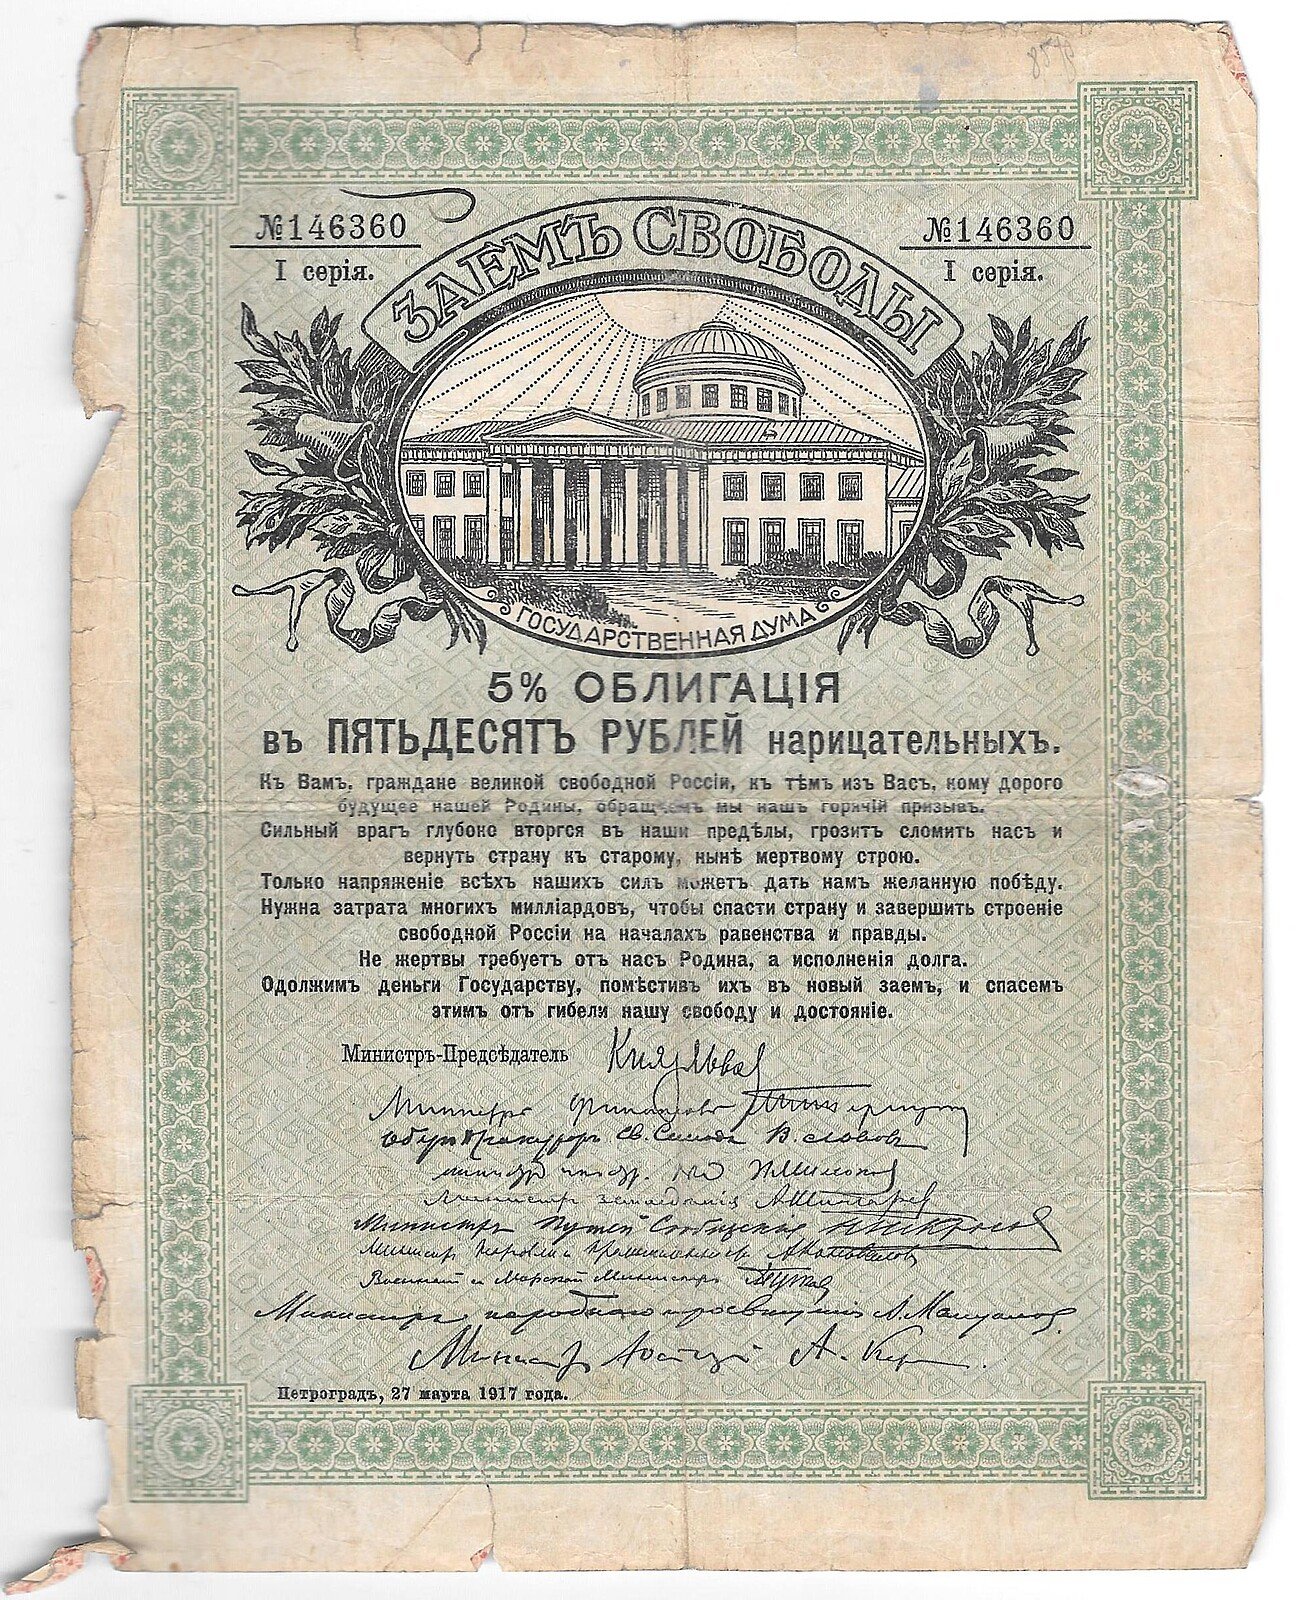 №146360
I серія.
ЗАЕМЪ СВОБОДЫ
№146360
I серія.
ГОСУДАРСТВЕННАЯ ДУМА
5% ОБЛИГАЦІЯ
въ ПЯТЬДЕСЯТЪ РУБЛЕЙ нарицательныхъ.
Къ Вамъ, граждане великой свободной Россіи, къ тѣмъ изъ Васъ, кому дорого
будущее нашей Родины, обращаемъ мы нашъ горячій призывъ.
Сильный врагъ глубоко вторгся въ наши предѣлы, грозитъ сломить насъ и
вернуть страну къ старому, нынѣ мертвому строю.
Только напряженіе всѣхъ нашихъ силъ можетъ дать намъ желанную побѣду.
Нужна затрата многихъ милліардовъ, чтобы спасти страну и завершить строеніе
свободной Россіи на началахъ равенства и правды.
Не жертвы требуетъ отъ насъ Родина, а исполненія долга.
Одолжимъ деньги Государству, помѣстивъ ихъ въ новый заемъ, и спасемъ
этимъ отъ гибели нашу свободу и достояніе.
Министръ-Предсѣдатель Князь Львов
Министръ Финансовъ
Оберъ Прокуроръ Св. Синода В. Львовъ
Министръ земледѣлія А. Шингарев
Министръ Путей Сообщенія
Министръ Торговли и Промышленности А Коновалов
Военный и Морской Министръ
Министръ народнаго просвѣщенія А. Мануилов.
Министръ Юстиціи А. Керен
Петроградъ, 27 марта 1917 года.